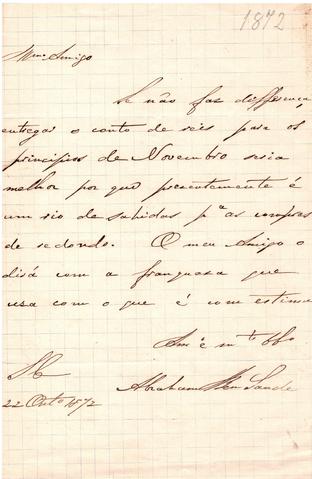 1872
Mmo Amigo
Se não faz differença
entregar o conto de reis para os
principios de Novembro seria
melhor por que presentemente é
um rio de sahidas pª as compras
de redondo. O meu Amigo o
dirá com a franquesa que
usa com o que é com estima
Amº e mto
SC
22 Outo 1872
Abraham Ben Saude